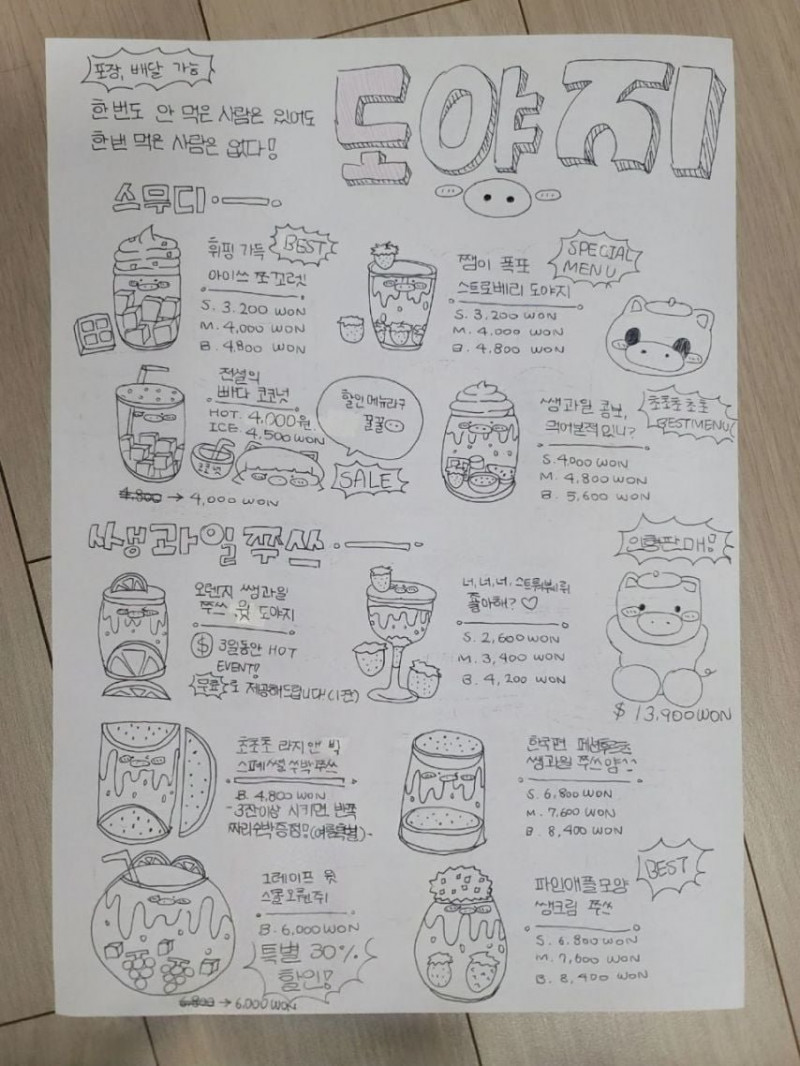 포장, 배달 가능
한번도 안 먹은 사람은 있어도
한번 먹은 사람은 없다!
도야지
스무디
휘핑 가득
BEST
아이쓰 쪼꼬렛
S. 3.200 WON
M. 4,000 WON
B. 4,800 WON
쨈이 폭포
SPECIAL
MENU
스트로베리 도야지
S. 3,200 WON
M. 4.000 WON
B. 4,800 WON
전설의
빠다 코코넛
HOT. 4,000원.
ICE. 4,500 WON
4.800 → 4,000 WON
코코넛
할인 메뉴라구
꿀꿀
SALE
쌩과일 콤보,
먹어본적 있니?
초초초초초
BEST MENU!
S. 4,000 WON
M. 4,800 WON
B. 5,600 WON
쌩과일 쭈쓰
오렌지 쌩과일
쭈쓰 윗 도야지
$ 3일동안 HOT
EVENT!
무료로 제공해드립니다 (1잔)
너, 너, 너, 스트뤄붸뤼
좋아해? ♡
S. 2,600 WON
M. 3,400 WON
B. 4,200 WON
인형판매!
$ 13,900 WON
초초초 라지 앤 빅
스페쎨 쑤박쭈쓰
B. 4,800 WON
- 3잔이상 시키면 반쪽
짜리 수박 증정!! (여름특별) -
한국편
쌩과일 쭈쓰
S. 6,800 WON
M. 7,600 WON
B. 8,400 WON
그레이프 윗
스몰오륀쥐
B. 6,000 WON
특별 30%
할인!
6.800 → 6.000 WON
파인애플모양
쌩크림 쭈쓰
BEST
S. 6.800 WON
M. 7,600 WON
B. 8,400 WON